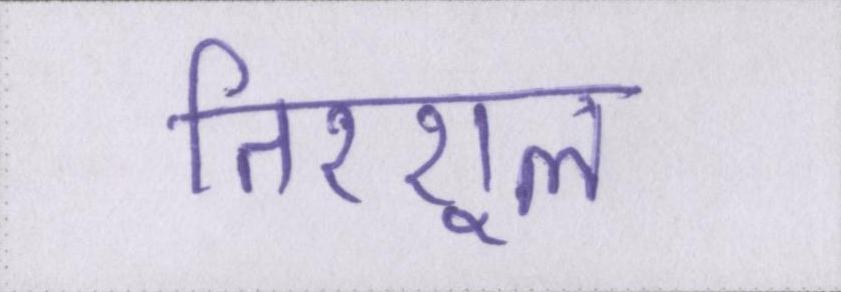 तिरशूल